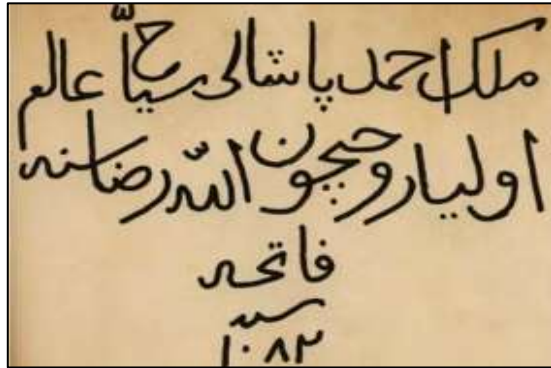 ملك احمد پاشالی سیاح عالم
اولیا روحیچون الله رضاسنه
فاتحه
سنه
١٠٨٢